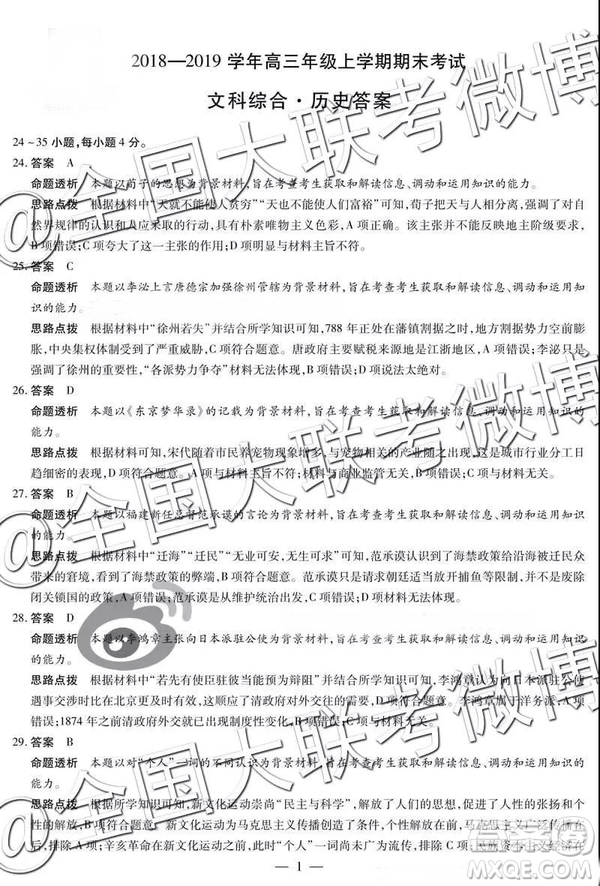 2018—2019 学年高三年级上学期期末考试
文科综合·历史答案
24～35 小题,每小题 4 分。
24. 答案 A
命题透析 本题以荀子的思想为背景材料,旨在考查考生获取和解读信息、调动和运用知识的能力。
思路点拨 根据材料中“天就不能使人贫穷”“天也不能使人们富裕”可知,荀子的天人相分,强调了对自
然界规律的认识和人应采取的行动,具有朴素唯物主义色彩,A 项正确。该主张并不能反映地主阶级变革
要求,B 项错误;C 项夸大了这一主张的作用;D 项明显与材料主旨不符。
25. 答案 C
命题透析 本题以李泌上言唐德宗加强徐州管辖为背景材料,旨在考查考生获取和解读信息、调动和运用知
识的能力。
思路点拨 根据材料中“徐州若失”并结合所学知识可知,788 年正处在藩镇割据之时,地方割据势力空前膨
胀,中央集权体制受到了严重威胁,C 项符合题意。唐政府主要财源是江浙地区,A 项错误;李泌只是
强调了徐州的重要性,“各派势力争夺”材料无法体现,B 项错误;D 项说法太绝对。
26. 答案 D
命题透析 本题以《东京梦华录》的记载为背景材料,旨在考查考生获取和解读信息、调动和运用知识
的能力。
思路点拨 根据材料可知,宋代随着市民养宠物现象增多,与宠物相关的产业也大量出现,这是城市行业分工日
趋细密的表现,D 项符合题意。A 项与材料主旨不符;材料与商业监管无关,B 项错误;C 项与材料无关。
27. 答案 B
命题透析 本题以福建新任总督范承谟的言论为背景材料,旨在考查考生获取和解读信息、调动和运用知识
的能力。
思路点拨 根据材料中“迁海”“迁民”“无业可安,无生可求”可知,范承谟认识到了海禁政策给沿海被迁民众
带来的窘境,看到了海禁政策的弊端,B 项符合题意。范承谟的建议并没有得到朝廷采纳,也并不是要废除
闭关锁国政策,A 项错误;范承谟是从维护统治的立场出发的,C 项错误;D 项材料无法体现。
28. 答案 D
命题透析 本题以李鸿章主张向日本派驻公使为背景材料,旨在考查考生获取和解读信息、调动和运用知识
的能力。
思路点拨 根据材料中“若先有使臣驻彼当能预为辩阻”并结合所学知识可知,李鸿章认为向日本派驻公使
遇事交涉时比在北京更及时有效,这体现出了清政府对外交往的需要,D 项符合题意。李鸿章属于洋务派,A 项
错误;1874 年之前清政府外交就已出现了近代化趋势,B 项错误;C 项与材料无关。
29. 答案 B
命题透析 本题以对“个人”一词的不同认识为背景材料,旨在考查考生获取和解读信息、调动和运用知识
的能力。
思路点拨 根据所学知识可知,新文化运动崇尚“民主与科学”,解放了人们的思想,促进了人们个性
的发展,B 项符合题意。新文化运动为马克思主义传播创造了条件,但此时
排除 A 项;辛亥革命在新文化运动之前,此时“个人”一词尚未广为流传,C 项错误;民族资本主义经济在
— 1 —